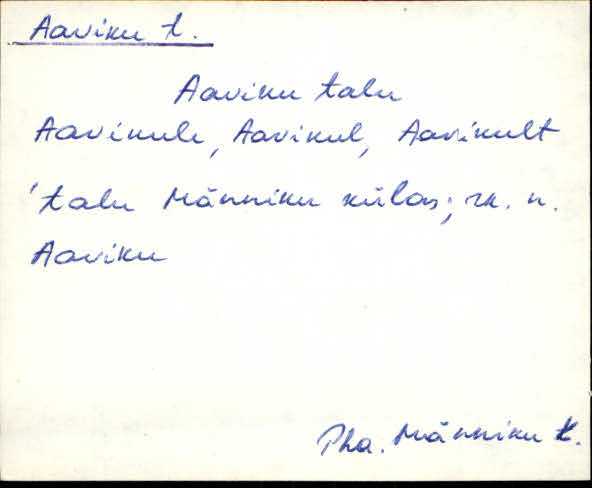 Aaviku t.
Aaviku talu
Aavikule, Aavikul, Aavikult
'talu Männiku külas; rk. n.
Aaviku
Pha. Männiku k.